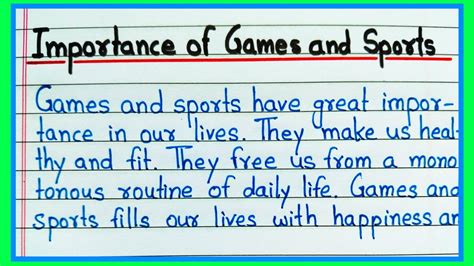 Importance of Games and Sports
Games and sports have great impor-
tance in our lives. They make us heal-
thy and fit. They free us from a mono
tonous routine of daily life. Games and
sports fills our lives with happiness an